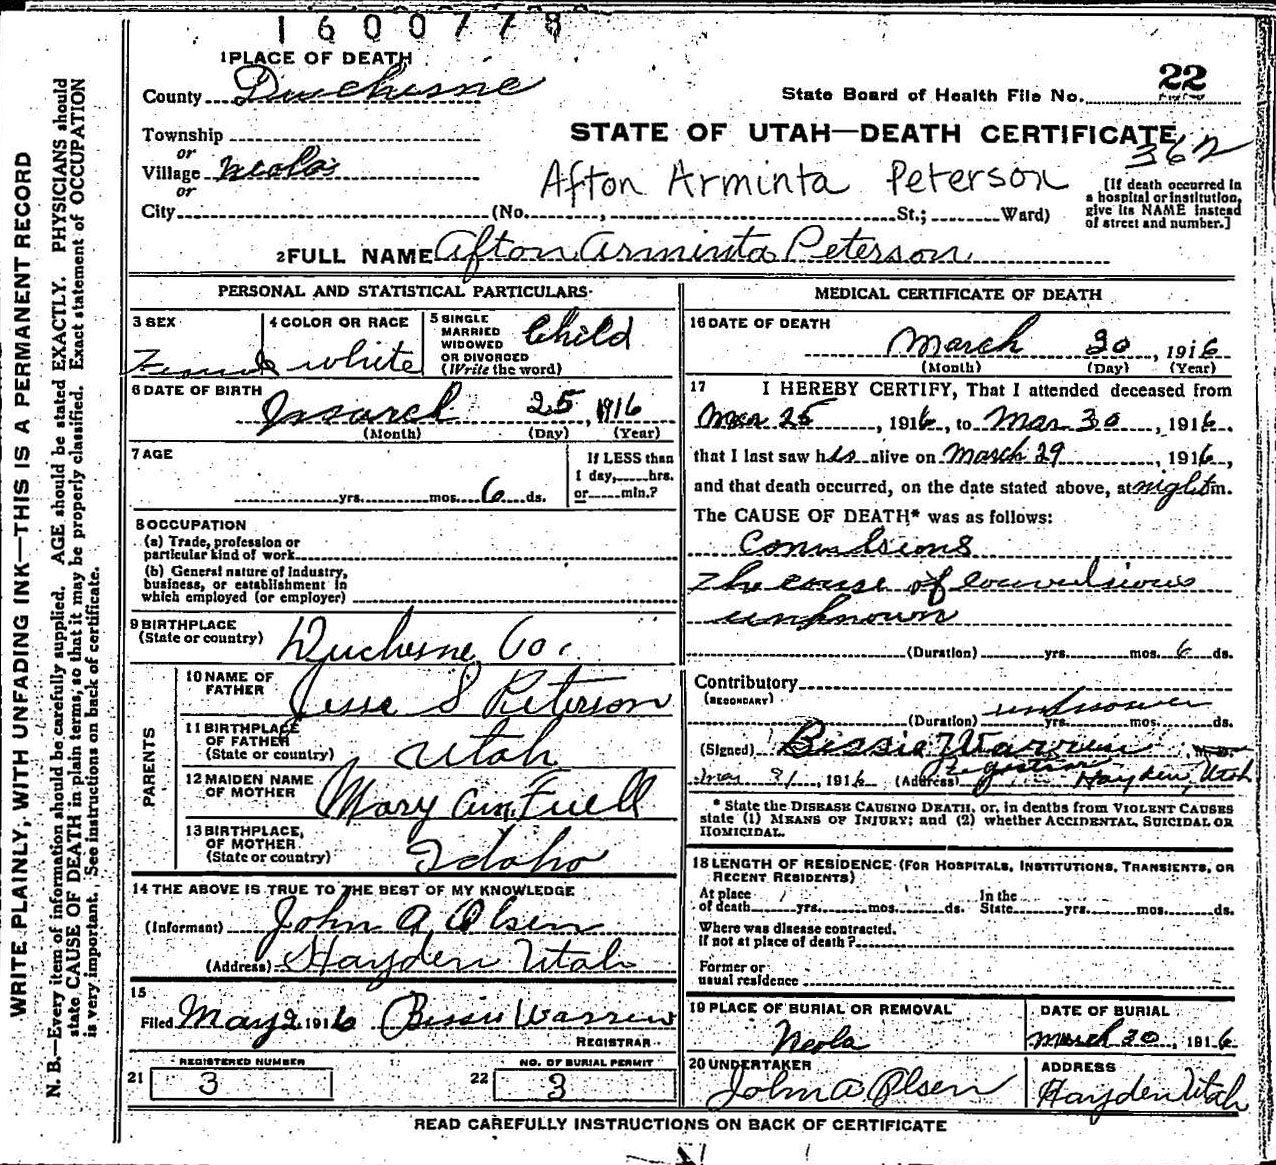 1600778
1 PLACE OF DEATH
County Duchesne
22
State Board of Health File No.
Township
or
STATE OF UTAH—DEATH CERTIFICATE
362
Village Neola
or
Afton Arminta Peterson
[If death occurred in
a hospital or institution,
give its NAME instead
of street and number.]
City (No. , St.; Ward)
2 FULL NAME Afton Arminta Peterson
PERSONAL AND STATISTICAL PARTICULARS
3 SEX
Female
4 COLOR OR RACE
white
5 SINGLE
MARRIED
WIDOWED
OR DIVORCED
(Write the word)
Child
6 DATE OF BIRTH
March 25, 1916
(Month) (Day) (Year)
7 AGE
yrs. mos. 6 ds.
If LESS than
1 day, hrs.
or min.?
8 OCCUPATION
(a) Trade, profession or
particular kind of work
(b) General nature of industry,
business, or establishment in
which employed (or employer)
9 BIRTHPLACE
(State or country)
Duchesne Co.
PARENTS
10 NAME OF
FATHER
Jesse S Peterson
11 BIRTHPLACE
OF FATHER
(State or country)
Utah
12 MAIDEN NAME
OF MOTHER
Mary Ann Fuell
13 BIRTHPLACE,
OF MOTHER
(State or country)
Idaho
14 THE ABOVE IS TRUE TO THE BEST OF MY KNOWLEDGE
(Informant) John A Olsen
(Address) Hayden Utah
15
Filed May 2 1916 Bessie Warren
REGISTRAR
REGISTERED NUMBER
21 3
NO. OF BURIAL PERMIT
22 3
MEDICAL CERTIFICATE OF DEATH
16 DATE OF DEATH
March 30, 1916
(Month) (Day) (Year)
17 I HEREBY CERTIFY, That I attended deceased from
Mar 25, 1916, to Mar 30, 1916,
that I last saw h is alive on March 29, 1916,
and that death occurred, on the date stated above, at night m.
The CAUSE OF DEATH* was as follows:
Convulsions
The cause of convulsions
unknown
(Duration) yrs. mos. 6 ds.
Contributory
(SECONDARY)
unknown
(Duration) yrs. mos. ds.
(Signed) Bessie J Warren M.D.
Registrar
Mar 31, 1916 (Address) Hayden, Utah
* State the DISEASE CAUSING DEATH, or, in deaths from VIOLENT CAUSES
state (1) MEANS OF INJURY; and (2) whether ACCIDENTAL, SUICIDAL OR
HOMICIDAL.
18 LENGTH OF RESIDENCE (FOR HOSPITALS, INSTITUTIONS, TRANSIENTS, OR
RECENT RESIDENTS)
At place
of death yrs. mos. ds.
In the
State yrs. mos. ds.
Where was disease contracted.
If not at place of death?
Former or
usual residence
19 PLACE OF BURIAL OR REMOVAL
Neola
DATE OF BURIAL
March 30, 1916
20 UNDERTAKER
John A Olsen
ADDRESS
Hayden Utah
READ CAREFULLY INSTRUCTIONS ON BACK OF CERTIFICATE
WRITE PLAINLY, WITH UNFADING INK—THIS IS A PERMANENT RECORD
N. B.—Every item of information should be carefully supplied. AGE should be stated EXACTLY. PHYSICIANS should
state CAUSE OF DEATH in plain terms, so that it may be properly classified. Exact statement of OCCUPATION
is very important. See instructions on back of certificate.